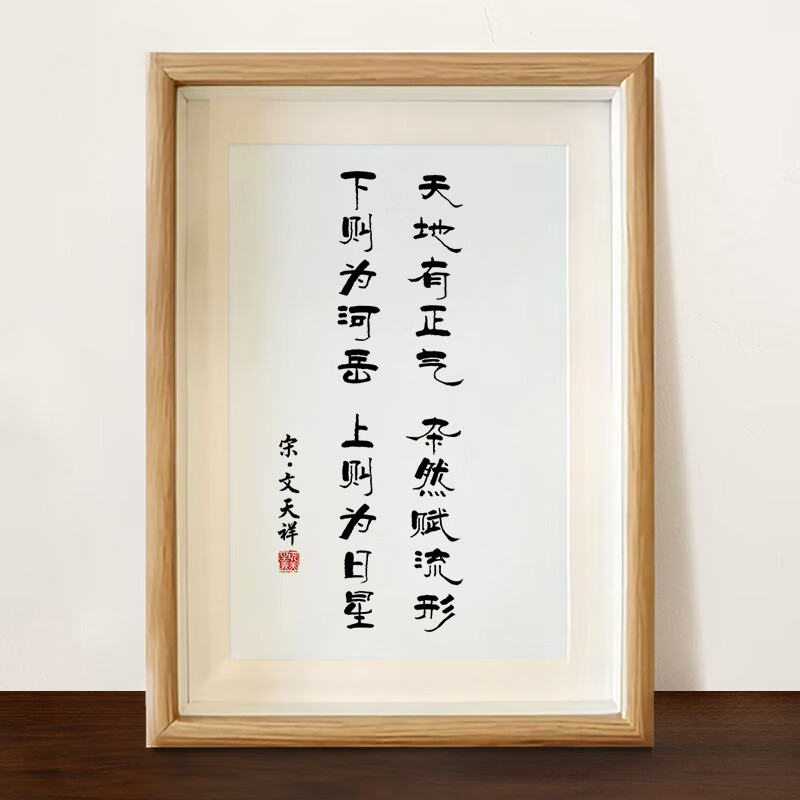 天地有正气 杂然赋流形
下则为河岳 上则为日星
宋·文天祥